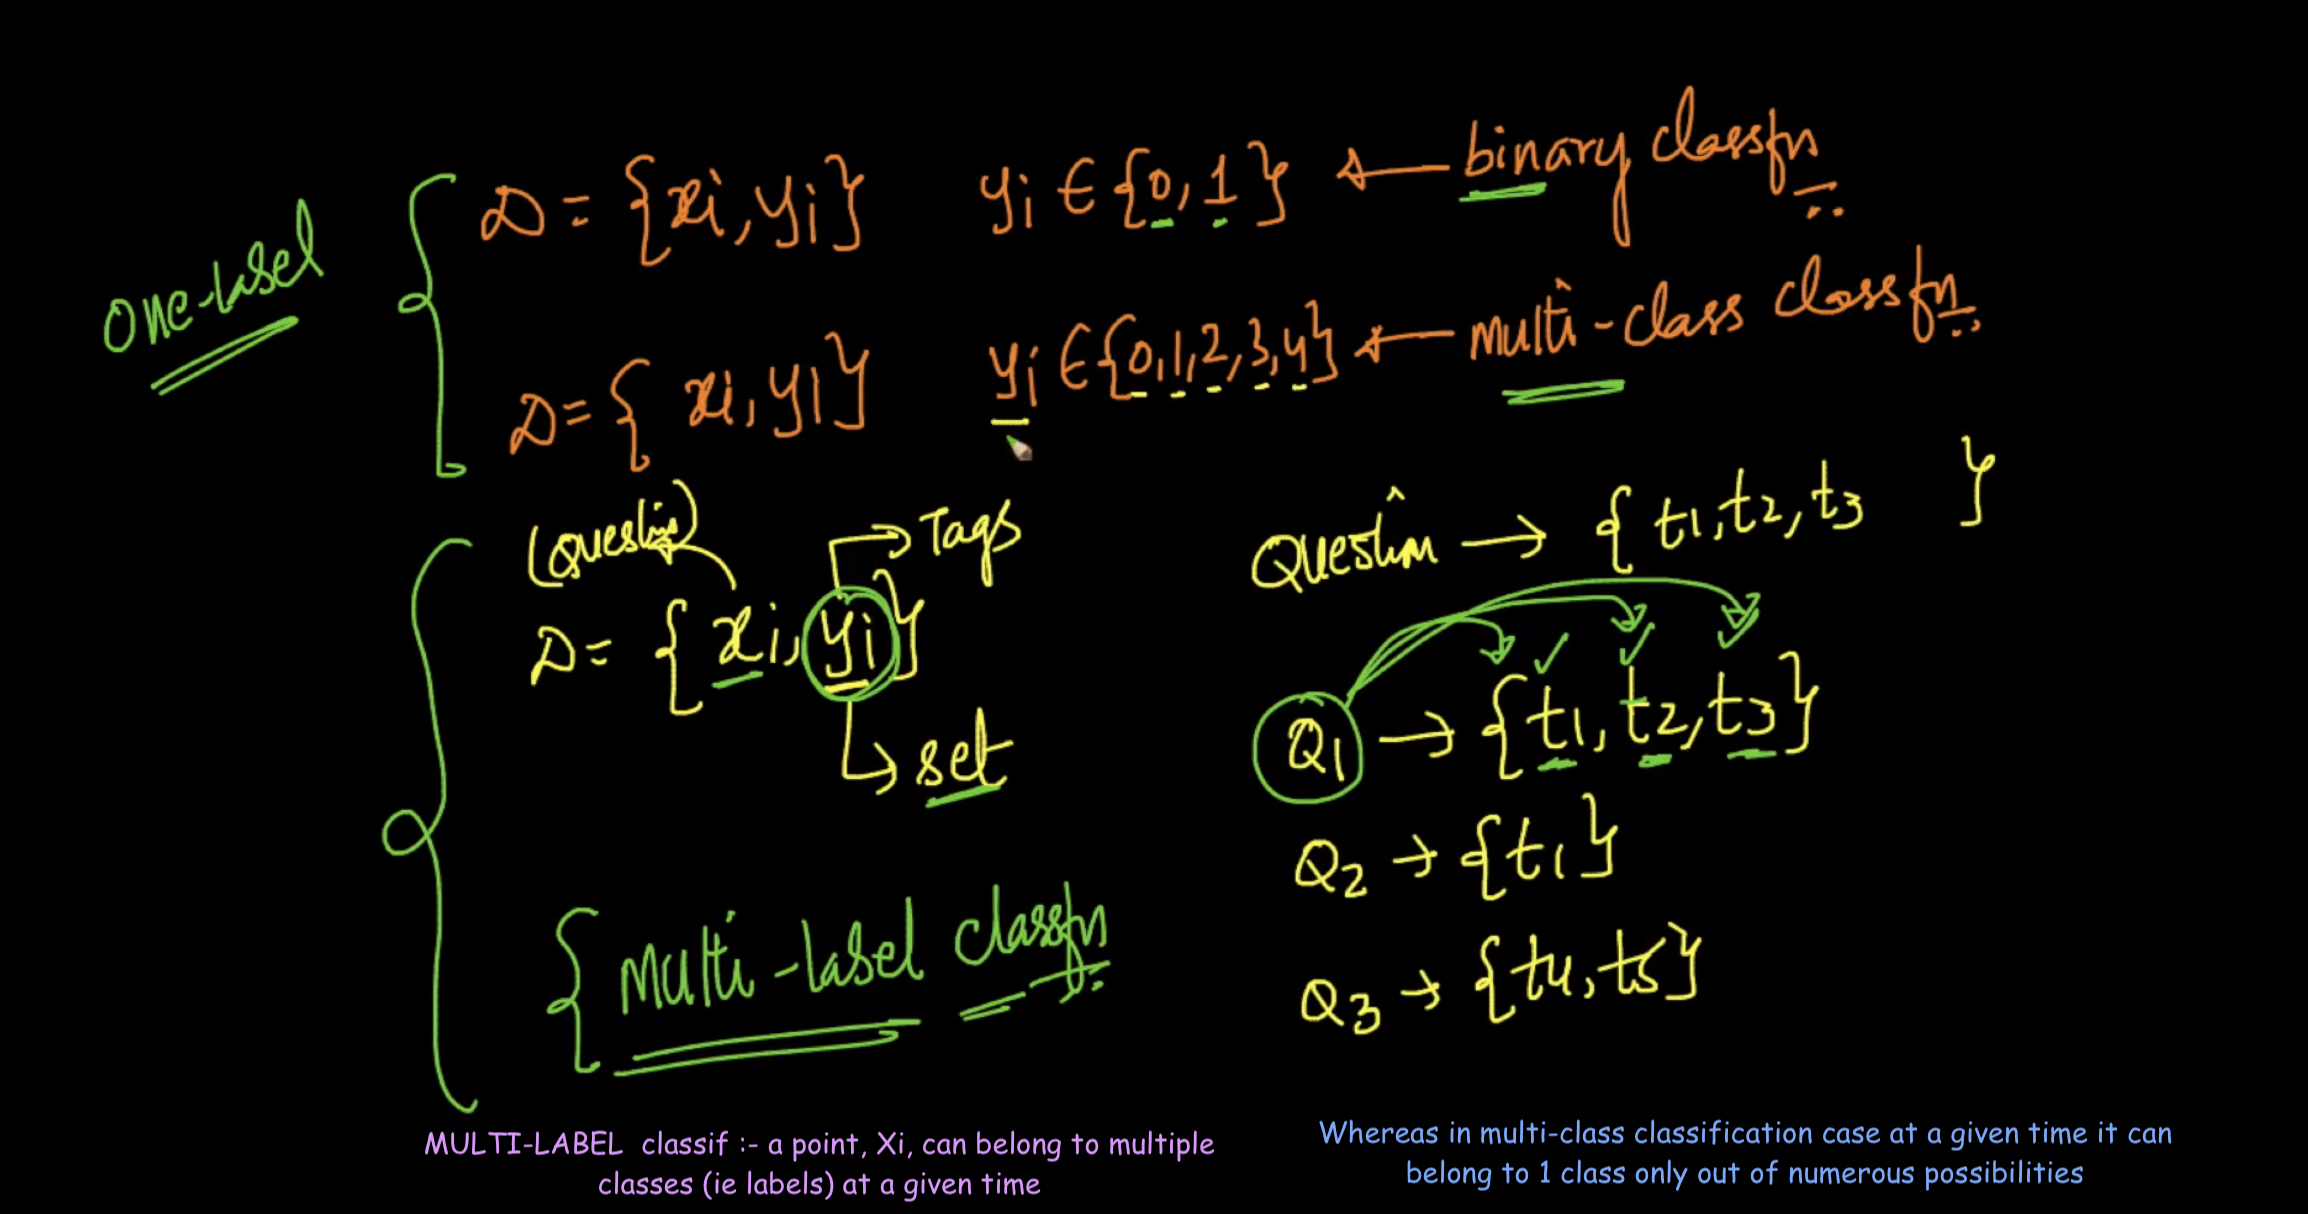 One-label
D = {xi, yi} yi ∈ {0, 1} ← binary classfn
D = {xi, yi} yi ∈ {0,1,2,3,4} ← multi-class classfn
(Question) Tags Question → {t1, t2, t3 }
D = {xi, yi}
set Q1 → {t1, t2, t3}
Q2 → {t1}
{ Multi-label classfn
Q3 → {t4, t5}
MULTI-LABEL classif :- a point, Xi, can belong to multiple
classes (ie labels) at a given time
Whereas in multi-class classification case at a given time it can
belong to 1 class only out of numerous possibilities